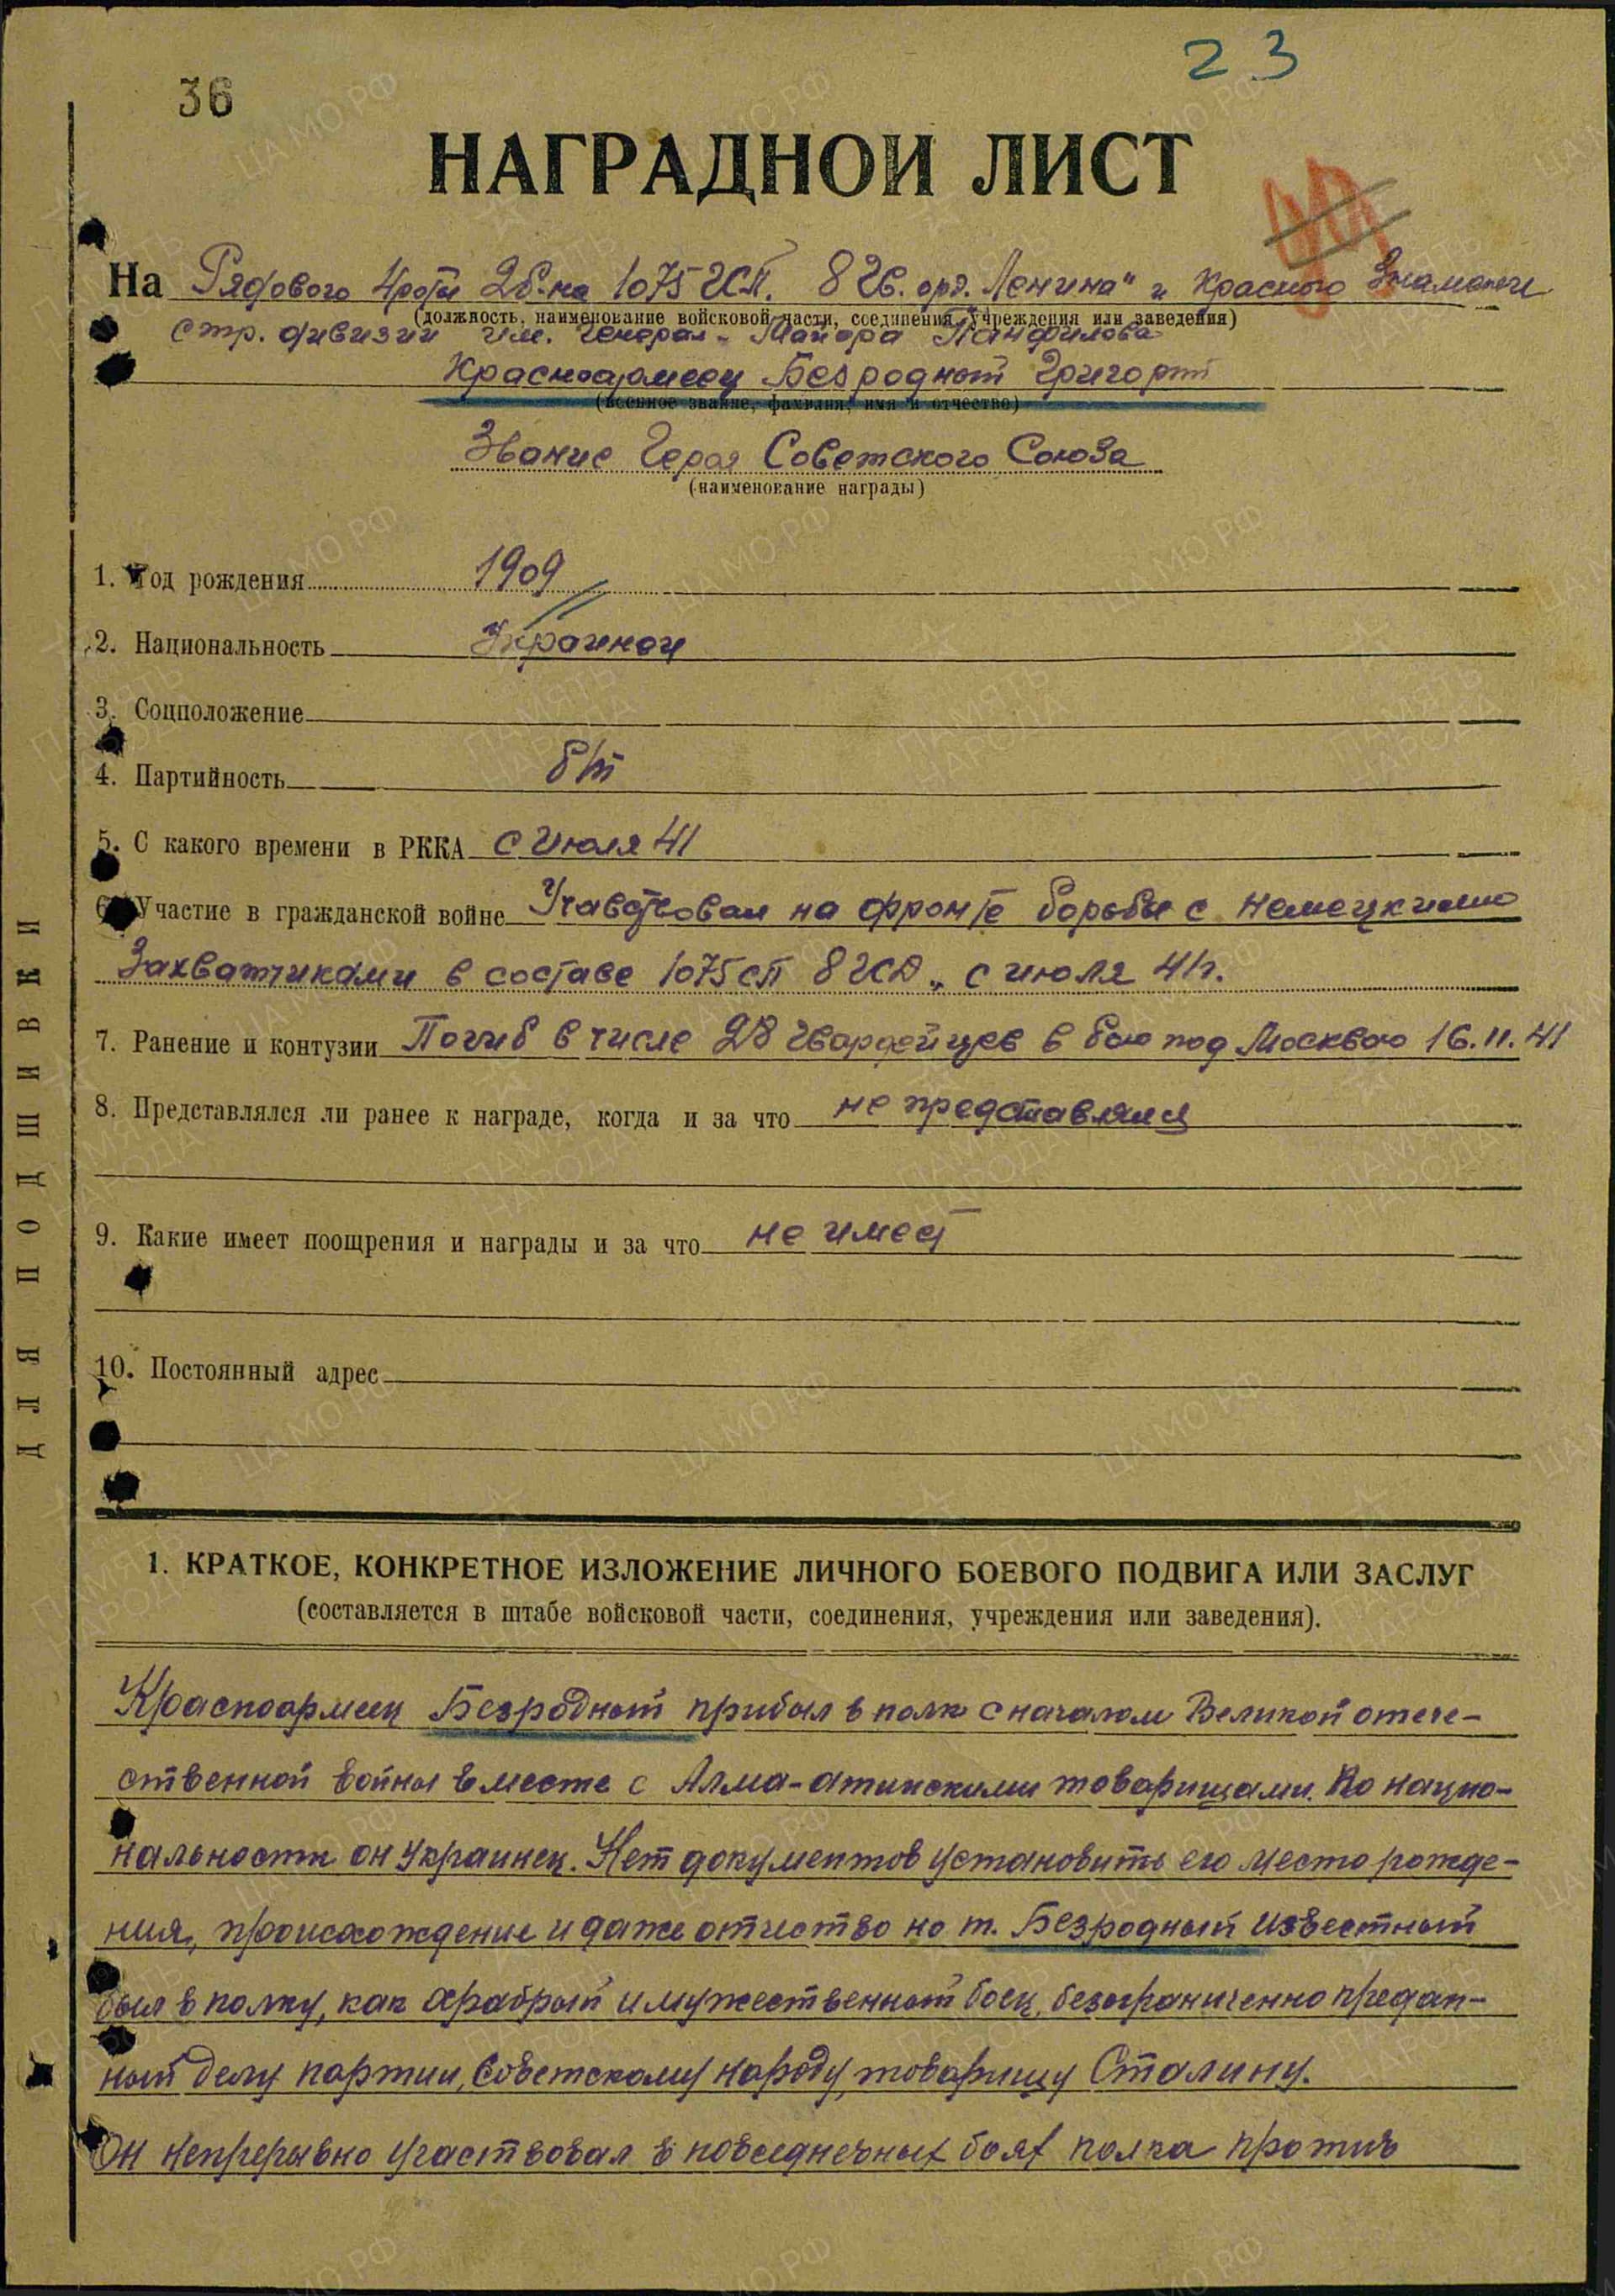 23
36
НАГРАДНОЙ ЛИСТ
На Рядового 4 роты 2 б-на 1075 ГСП. 8 Гв. орд. Ленина" и Красного Знамени
(должность, наименование войсковой части, соединения, учреждения или заведения)
стр. дивизии им. Генерал-Майора Панфилова
Красноармеец Безродный Григорий
(военное звание, фамилия, имя и отчество)
Звание Героя Советского Союза
(наименование награды)
1. Год рождения 1909
2. Национальность Украинец
3. Соцположение
4. Партийность б/п
5. С какого времени в РККА с Июля 41
6. Участие в гражданской войне Участвовал на фронте борьбы с немецкими
Захватчиками в составе 1075 сп 8 ГСД „ с июля 41 г.
7. Ранение и контузии Погиб в числе 28 гвардейцев в бою под Москвою 16.11.41
8. Представлялся ли ранее к награде, когда и за что не представлялся
9. Какие имеет поощрения и награды и за что не имеет
10. Постоянный адрес
ДЛЯ ПОДШИВКИ
1. КРАТКОЕ, КОНКРЕТНОЕ ИЗЛОЖЕНИЕ ЛИЧНОГО БОЕВОГО ПОДВИГА ИЛИ ЗАСЛУГ
(составляется в штабе войсковой части, соединения, учреждения или заведения).
Красноармеец Безродный прибыл в полк с началом Великой отече-
ственной войны вместе с Алма-атинскими товарищами. По нацио-
нальности он украинец. Нет документов установить его место рожде-
ния, происхождение и даже отчество но т. Безродный известный
был в полку, как храбрый и мужественный боец, безгранично предан-
ный делу партии, Советскому народу, товарищу Сталину.
Он непрерывно участвовал в повседневных боях полка против